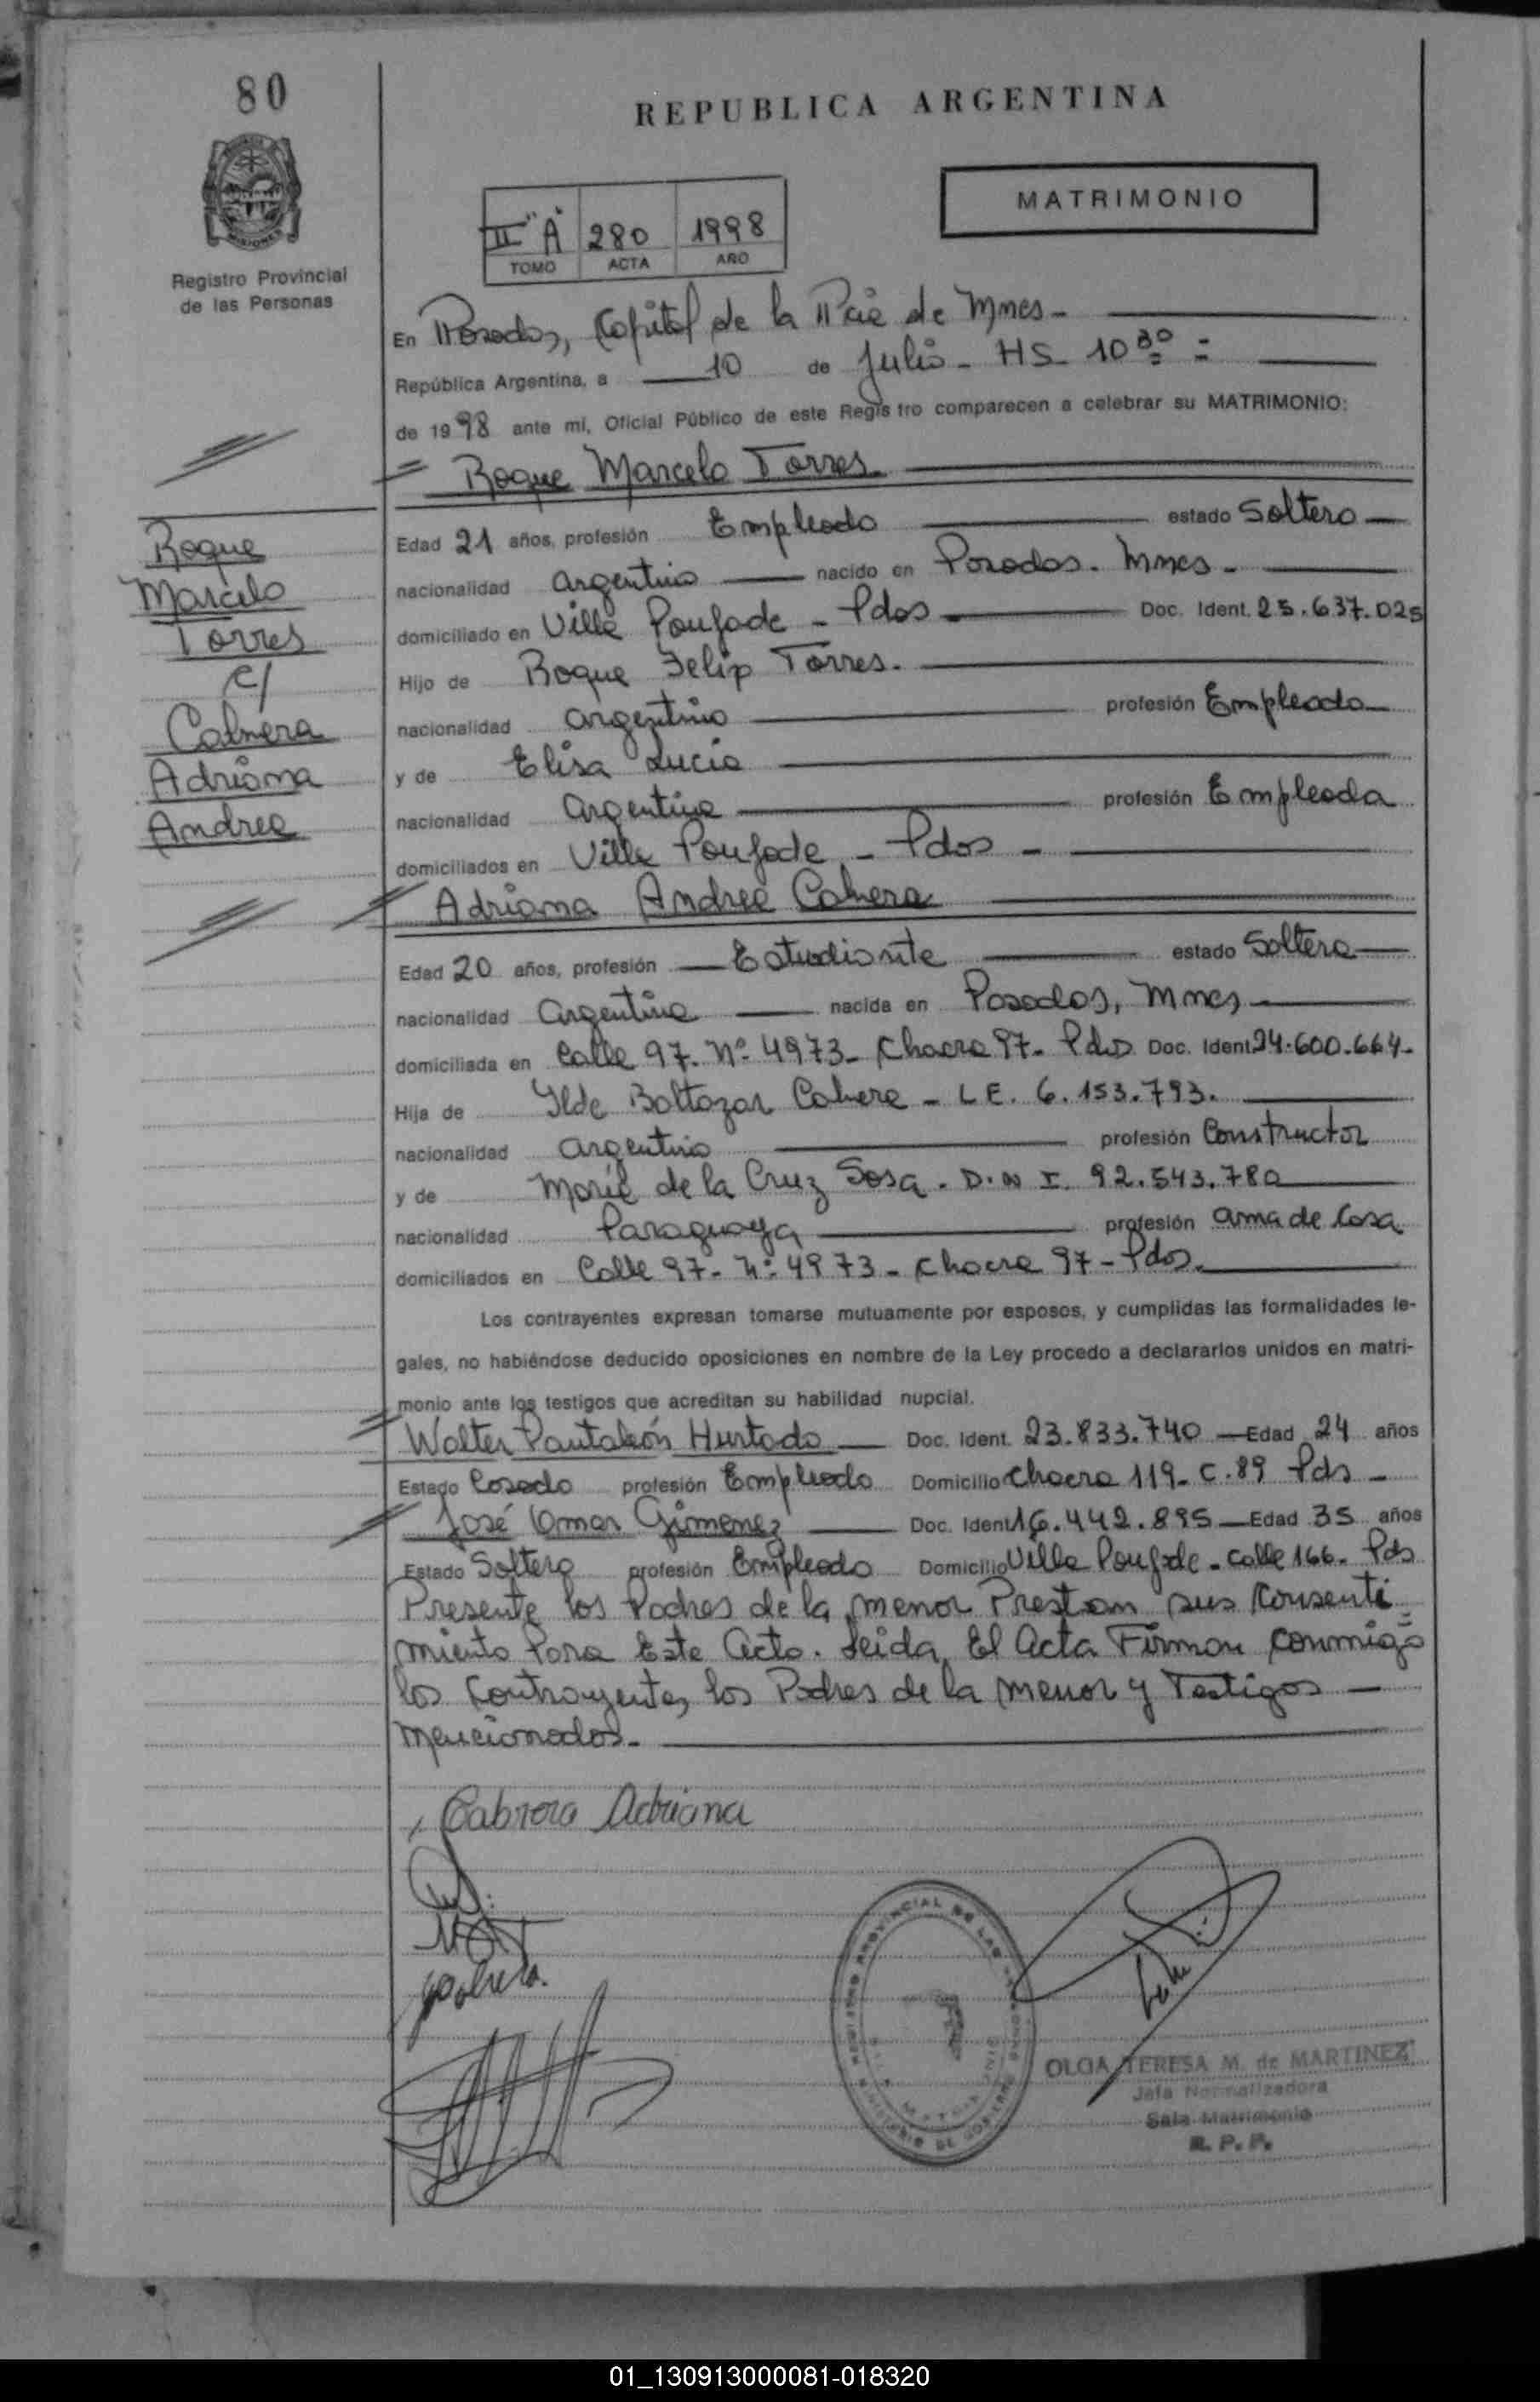 80
REPUBLICA ARGENTINA
MISIONES
Registro Provincial
de las Personas
MATRIMONIO
II "A" 280 1998
TOMO ACTA AÑO
En Posadas, Capital de la Pcia de Mnes-
República Argentina, a 10 de Julio - HS - 10 30 =
de 1998 ante mí, Oficial Público de este Registro comparecen a celebrar su MATRIMONIO:
Roque Marcelo Torres
Edad 21 años, profesión Empleado estado Soltero
nacionalidad argentino nacido en Posadas. Mnes-
domiciliado en Villa Poujade - Pdas Doc. Ident. 25.637.025
Hijo de Roque Felip Torres.
nacionalidad argentino profesión Empleado
y de Elisa Lucia
nacionalidad argentina profesión Empleada
domiciliados en Villa Poujade - Pdas -
Adriana Andrea Cabrera
Edad 20 años, profesión Estudiante estado Soltera
nacionalidad argentina nacida en Posadas, Mnes
domiciliada en Calle 97. Nº 4973- Chacra 97- Pdas Doc. Ident 24.600.664-
Hija de Ilde Baltazar Cabrera - L E. 6.153.793.
nacionalidad argentino profesión Constructor
y de María de la Cruz Sosa. D.N I. 92.543.780
nacionalidad Paraguaya profesión ama de Casa
domiciliados en Calle 97- Nº 4973- Chacra 97- Pdas.
Los contrayentes expresan tomarse mutuamente por esposos, y cumplidas las formalidades le-
gales, no habiéndose deducido oposiciones en nombre de la Ley procedo a declararlos unidos en matri-
monio ante los testigos que acreditan su habilidad nupcial.
Walter Pantaleón Hurtado Doc. Ident. 23.833.740 Edad 24 años
Estado Casado profesión Empleado Domicilio Chacra 119- C. 89 Pds -
José Omar Gimenez Doc. Ident 16.442.895 Edad 35 años
Estado Soltero profesión Empleado Domicilio Villa Poujade - calle 166- Pds
Presente los Padres de la menor Prestan sus Consenti
miento Para Este Acto. Leida El Acta Firman conmigo
los Contrayentes, los Padres de la menor y Testigos
mencionados.
Roque
Marcelo
Torres
c/
Cabrera
Adriana
Andrea
Cabrera Adriana
OLGA TERESA M. de MARTINEZ
Jefa Normalizadora
Sala Matrimonio
R. P. P.
01_130913000081-018320